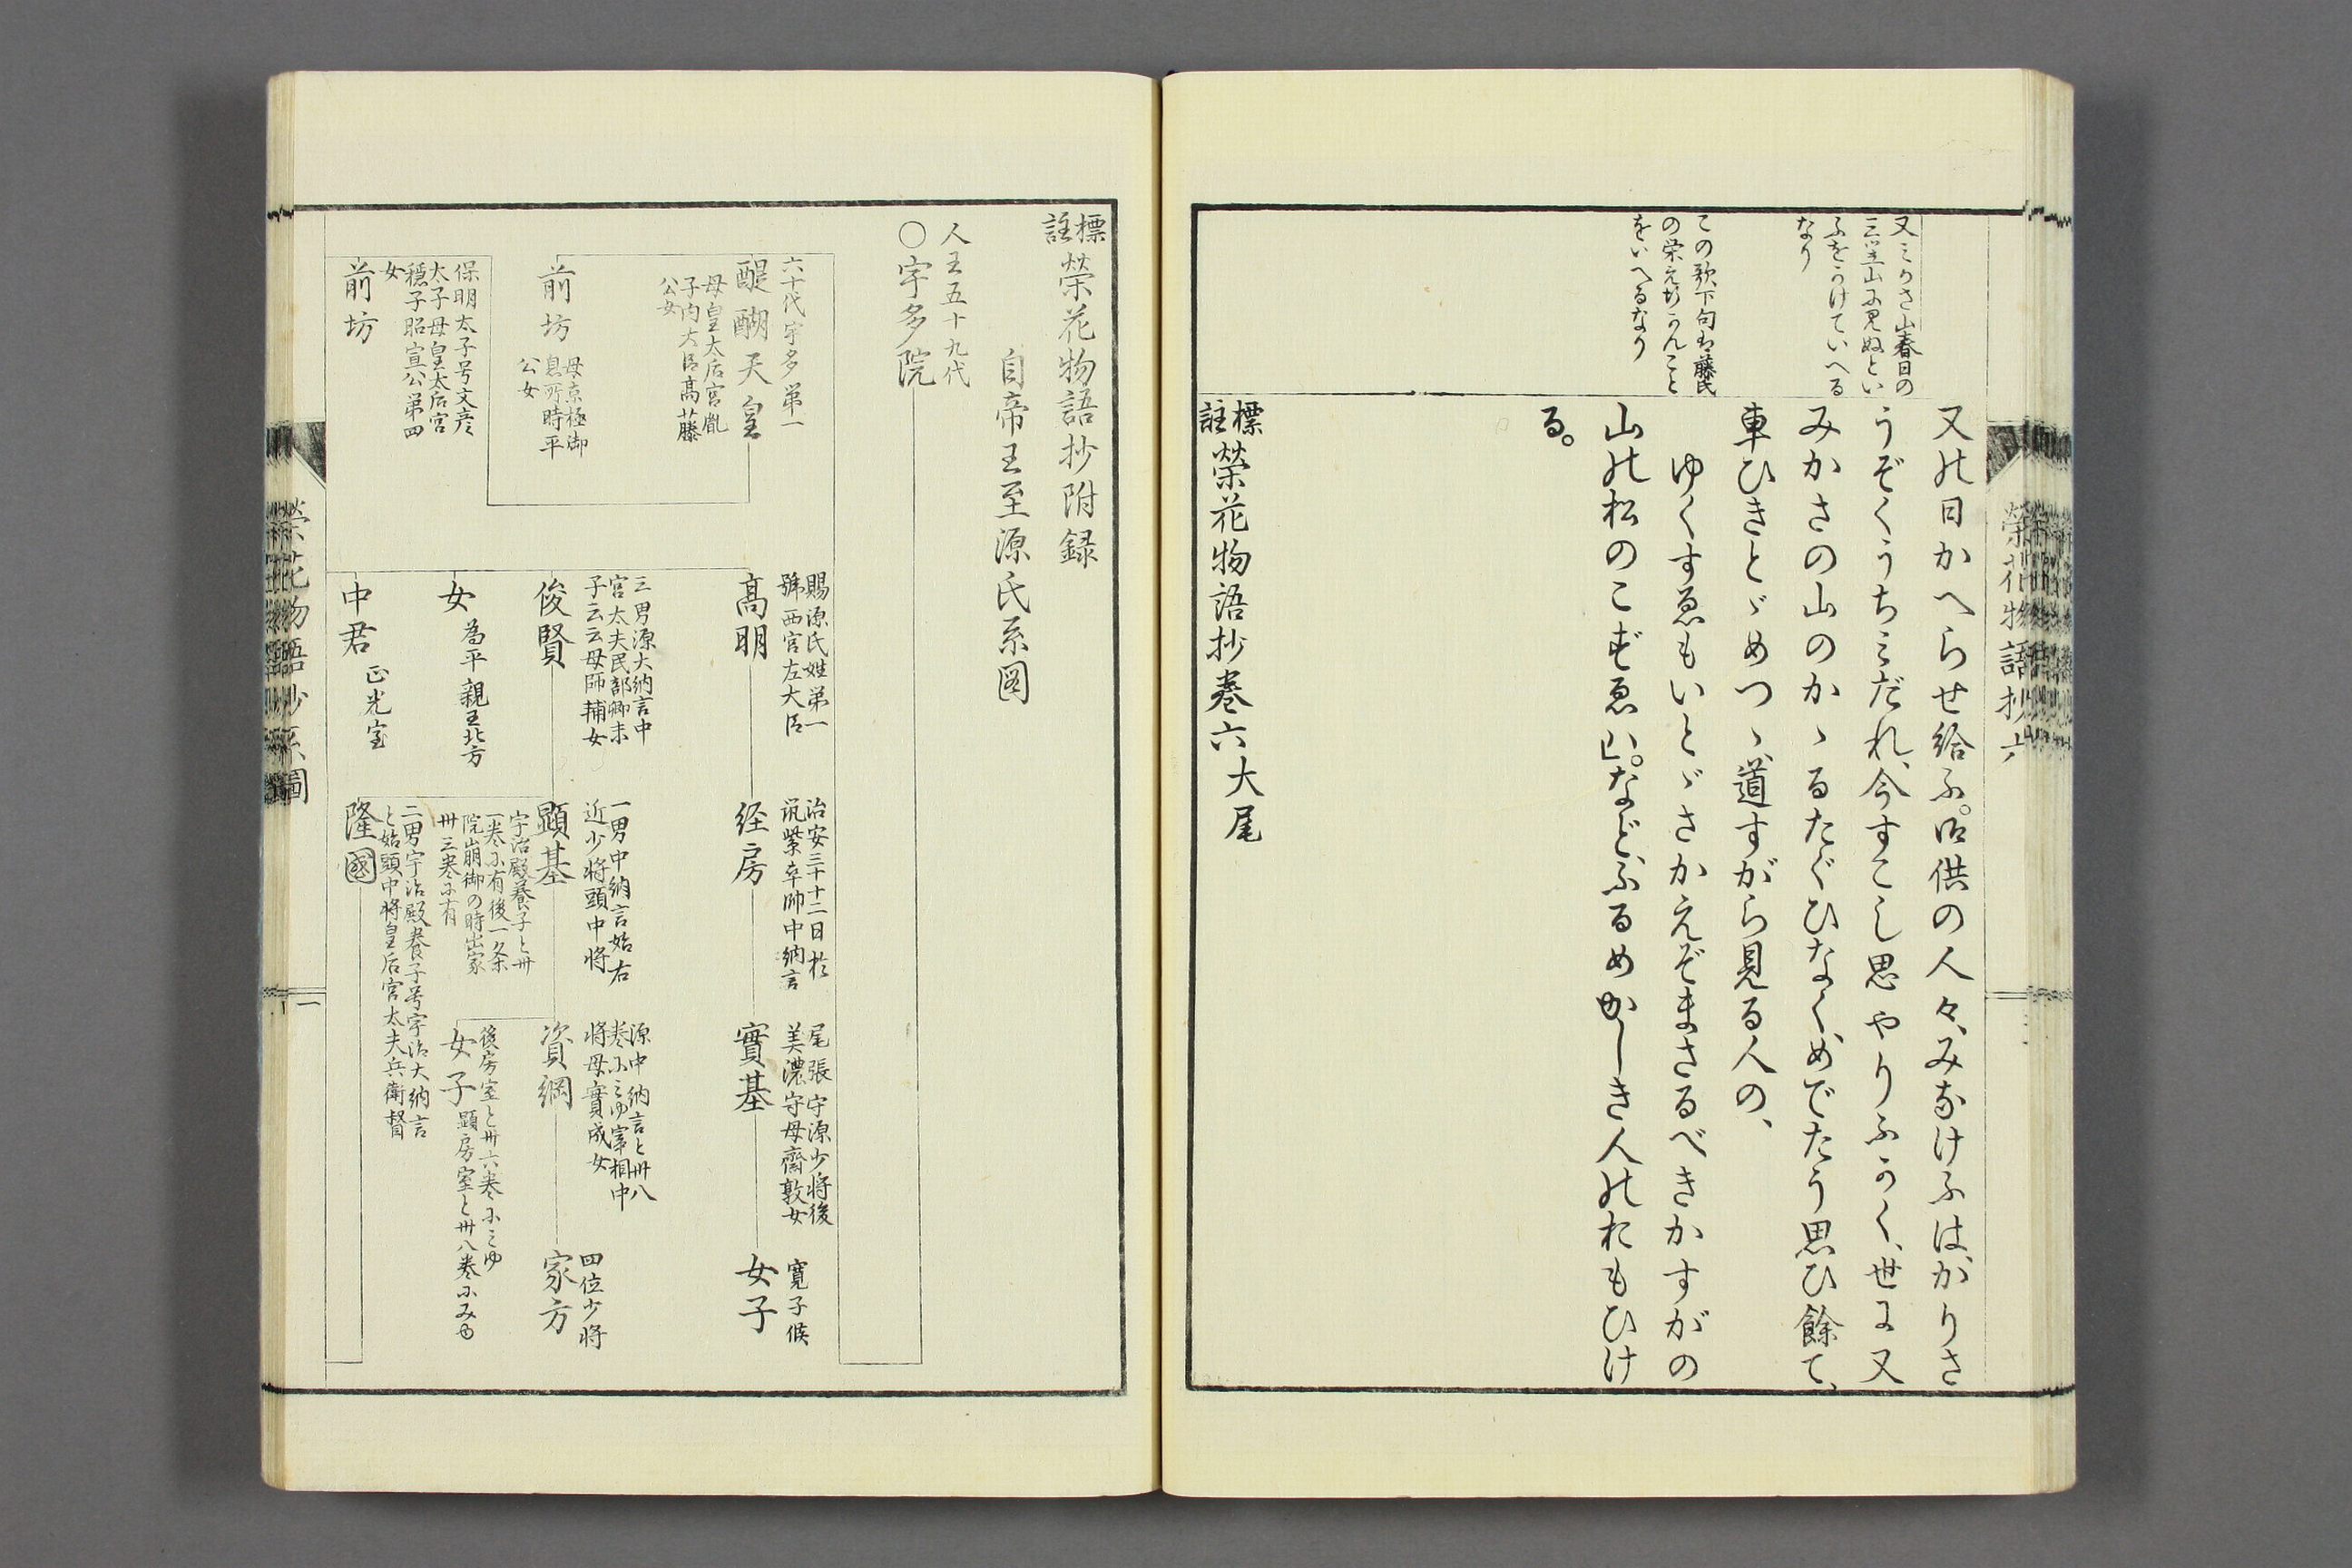 榮花物語抄六
又ミかさ山春日の
三笠山に見ぬとい
ふをかけていへる
なり
この歌下句は藤氏
の栄え行かんこと
をいへるなり
又の日かへらせ給ふ。御供の人々、みなけふは、かりさ
うぞくうちミだれ、今すこし思やりふかく、世に又
みかさの山のかゝるたぐひなく、めでたう思ひ餘て、
車ひきとゞめつゝ、道すがら見る人の、
ゆくすゑもいとゞさかえぞまさるべきかすがの
山の松のこずゑハ。などぶるめかしき人のおもひけ
る。
標註榮花物語抄卷六大尾
標註榮花物語抄附録
自帝王至源氏系図
人王五十九代
〇宇多院
六十代宇多第一
醍醐天皇
母皇太后宮胤
子内大臣高藤
公女
前坊
母京極御
息所時平
公女
保明太子号文彦
太子母皇太后宮
穏子昭宣公第四
女
前坊
賜源氏姓第一
號西宮左大臣
高明
治安三十十二日於
筑紫卒帥中納言
経房
尾張守源少将後
美濃守母齋敦女
實基
寛子候
女子
三男源大納言中
宮太夫民部卿末
子云云母師輔女
俊賢
一男中納言始右
近少将頭中将
顕基
宇治殿養子と卅
一巻に有後一条
院崩御の時出家
卅三巻に有
源中納言と卅八
巻にミゆ宰相中
将母實成女
資綱
四位少将
家方
後房室と卅六巻にミゆ
女子
顕房室と卅八巻にみゆ
女
為平親王北方
中君
正光室
二男宇治殿養子号宇治大納言
と始頭中将皇后宮太夫兵衛督
隆國
榮花物語抄系圖
一